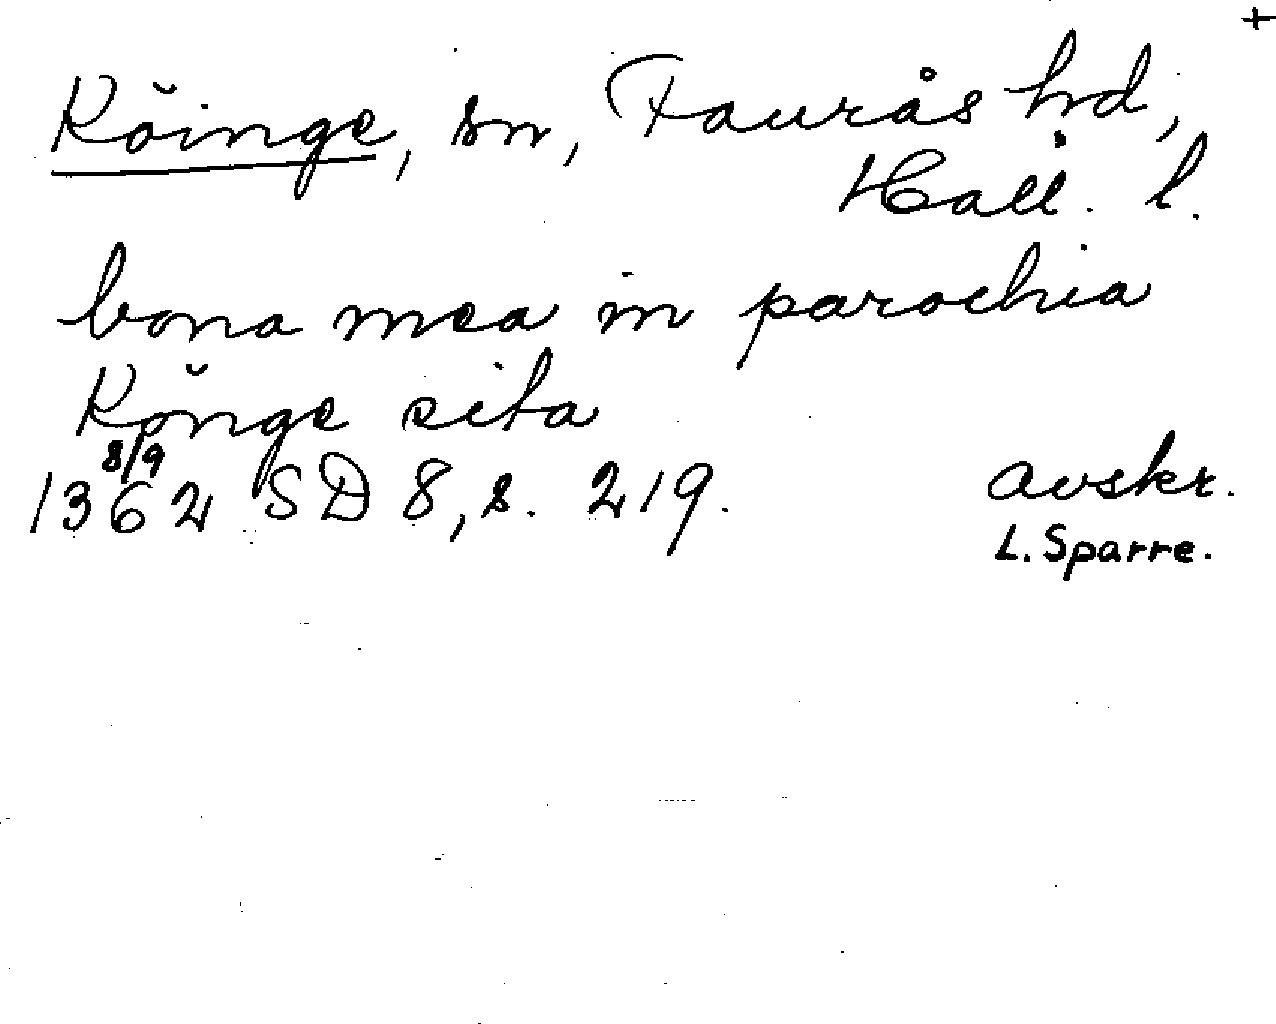 +
Köinge, sn, Faurås hd,
Hall. l.
bona mea in parochia
Könge sita
1362 8/9 SD 8, s. 219.
avskr.
L. Sparre.